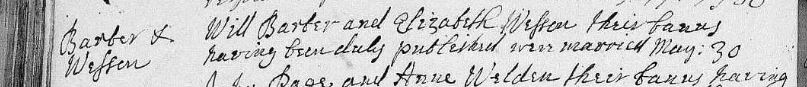 Barber &
Wessen
Will Barber and Elizabeth Wessen their banns
having been duly published were married May: 30
Page and Anne Welden their banns having